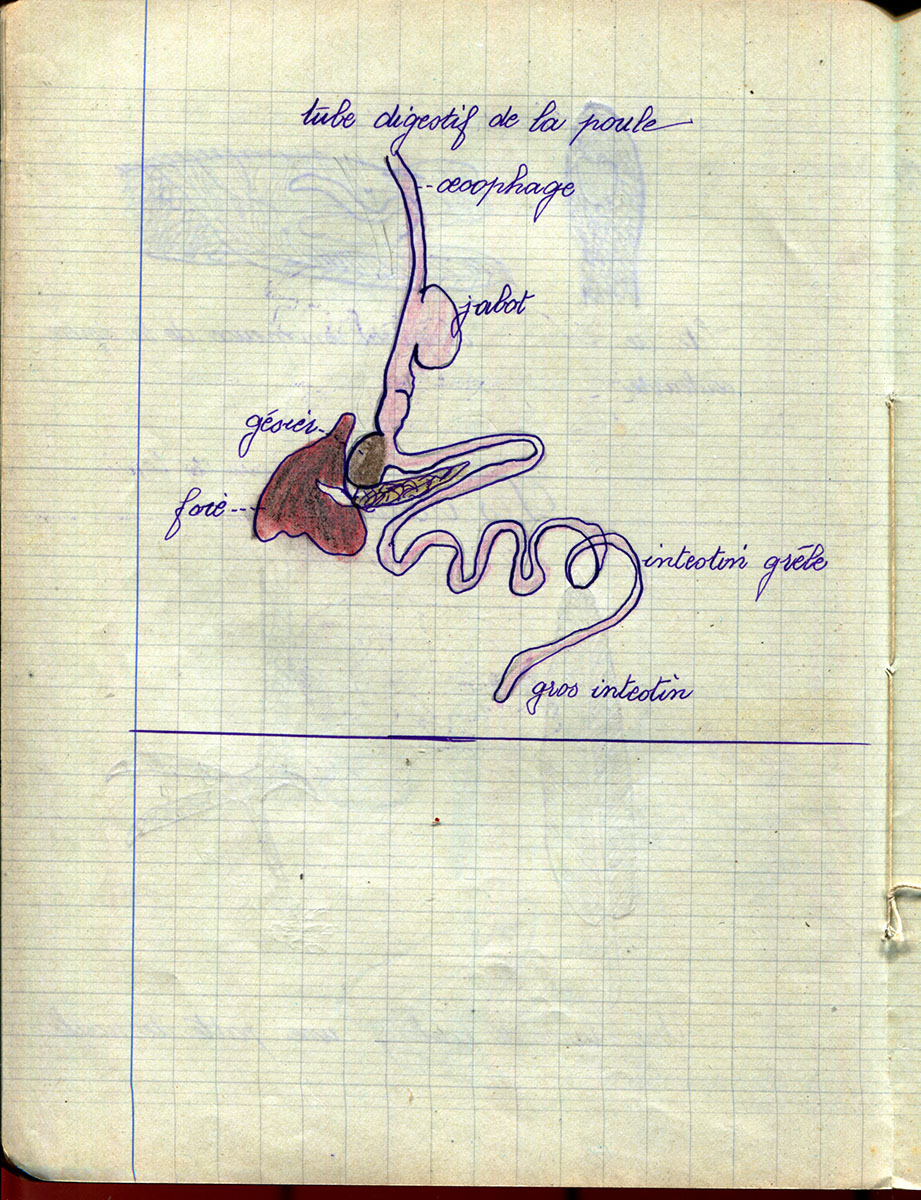 tube digestif de la poule
œsophage
jabot
gésier
foie
intestin grêle
gros intestin